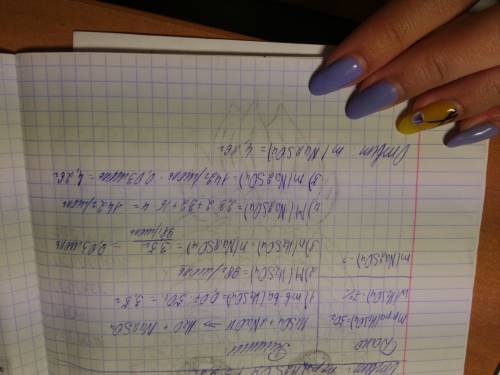 Дано
mр-ра(H₂SO₄)=50г
w(H₂SO₄)=7%
m(Na₂SO₄)-?
Решение
H₂SO₄+2NaOH → H₂O + Na₂SO₄
1) mв-ва(H₂SO₄)=0,07·50г = 3,5г
2) M(H₂SO₄)=98г/моль
3) n(H₂SO₄)=n(Na₂SO₄)= 3,5г / 98г/моль = 0,03моль
4) M(Na₂SO₄)=23·2+32+16·4=142г/моль
3) m(Na₂SO₄)=142г/моль·0,03моль=4,26г
Ответ: m(Na₂SO₄)=4,26г